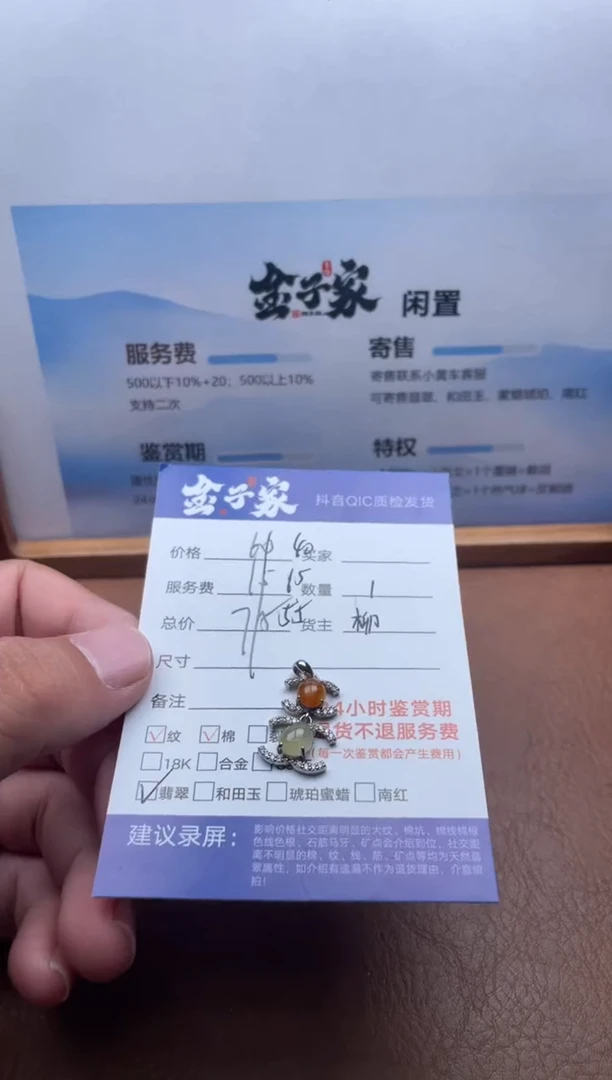 金子家 闲置
服务费
500以下10%+20；500以上10%
支持二次
寄售
寄售联系小黄车客服
可寄售翡翠、和田玉、蜜蜡琥珀、南红
鉴赏期
特权
金子家 抖音QIC质检发货
价格 60 40 买家
服务费 15 15 数量 1
总价 75 55 货主 柳
尺寸
备注
24小时鉴赏期
退货不退服务费
(每一次鉴赏都会产生费用)
纹 棉
18K 合金
翡翠 和田玉 琥珀蜜蜡 南红
建议录屏：
影响价格社交距离明显的大纹、棉坑、棉线棉根
色线色根、石筋马牙、矿点会介绍到位，社交距
离不明显的棉、纹、线、筋、矿点等均为天然翡
翠属性，如介绍有遗漏不作为退货理由，介意慎
拍！